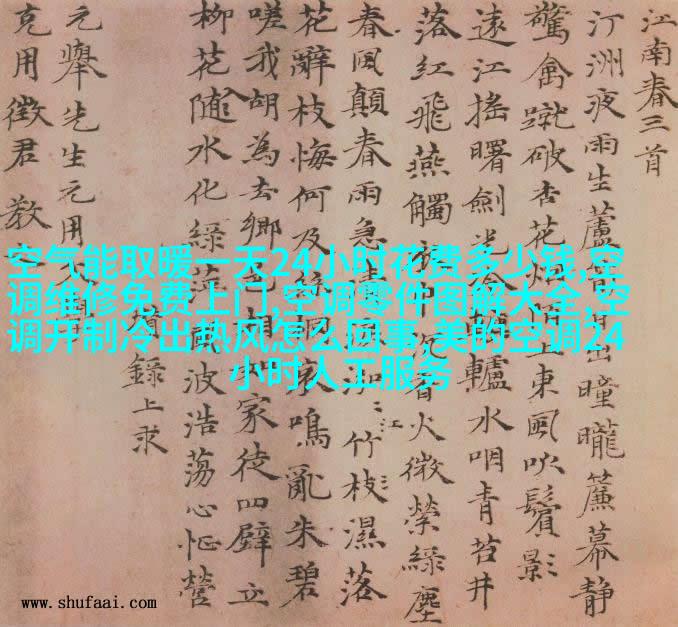 江南春三首
汀洲夜雨生蘆出曈曨簾幕靜
驚禽蹴破杏花上東風吹鬢影
遠江搖曙劍光轤水咽青苔井
落紅飛燕觸沉香火微縈綠塵
春風顛春雨急江竹枝濕落
花辭枝悔何及哀鳴亂朱碧
嗟我胡為去鄉家徒四壁立
柳花隨水化綠波浩蕩心怔營
錄上求
元舉先生元用
克用徵君教
空气能取暖一天24小时花费多少钱,空
调维修免费上门,空调零件图解大全,空
调开制冷出热风怎么回事,美的空调24
小时人工服务
www.shufaai.com